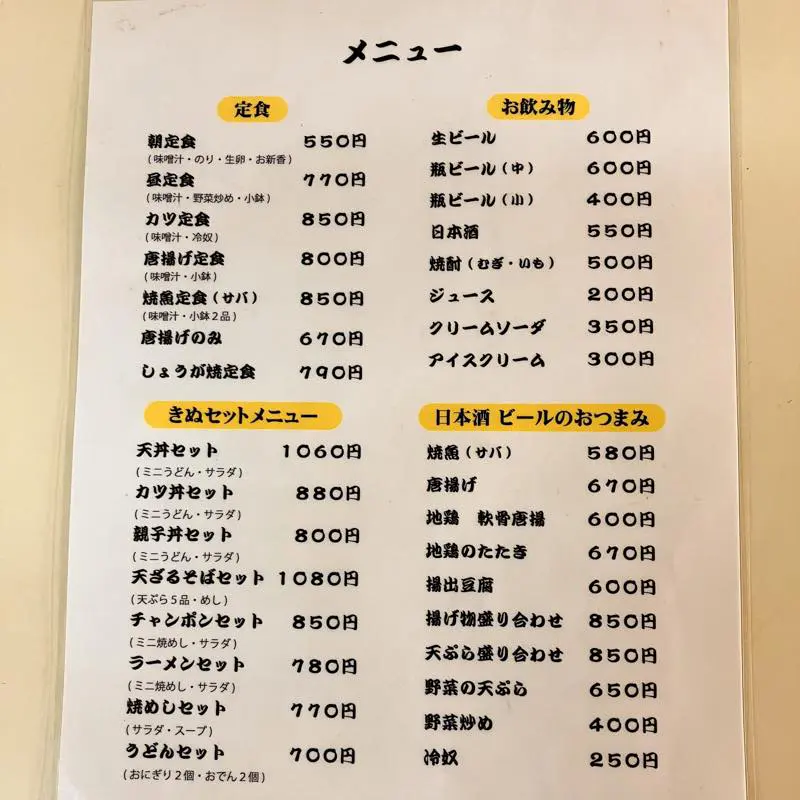 メニュー
定食
朝定食 550円
(味噌汁・のり・生卵・お新香)
昼定食 770円
(味噌汁・野菜炒め・小鉢)
カツ定食 850円
(味噌汁・冷奴)
唐揚げ定食 800円
(味噌汁・小鉢)
焼魚定食(サバ) 850円
(味噌汁・小鉢2品)
唐揚げのみ 670円
しょうが焼定食 790円
きぬセットメニュー
天丼セット 1060円
(ミニうどん・サラダ)
カツ丼セット 880円
(ミニうどん・サラダ)
親子丼セット 800円
(ミニうどん・サラダ)
天ざるそばセット 1080円
(天ぷら5品・めし)
チャンポンセット 850円
(ミニ焼めし・サラダ)
ラーメンセット 780円
(ミニ焼めし・サラダ)
焼めしセット 770円
(サラダ・スープ)
うどんセット 700円
(おにぎり2個・おでん2個)
お飲み物
生ビール 600円
瓶ビール(中) 600円
瓶ビール(小) 400円
日本酒 550円
焼酎(むぎ・いも) 500円
ジュース 200円
クリームソーダ 350円
アイスクリーム 300円
日本酒 ビールのおつまみ
焼魚(サバ) 580円
唐揚げ 670円
地鶏 軟骨唐揚 600円
地鶏のたたき 670円
揚出豆腐 600円
揚げ物盛り合わせ 850円
天ぷら盛り合わせ 850円
野菜の天ぷら 650円
野菜炒め 400円
冷奴 250円